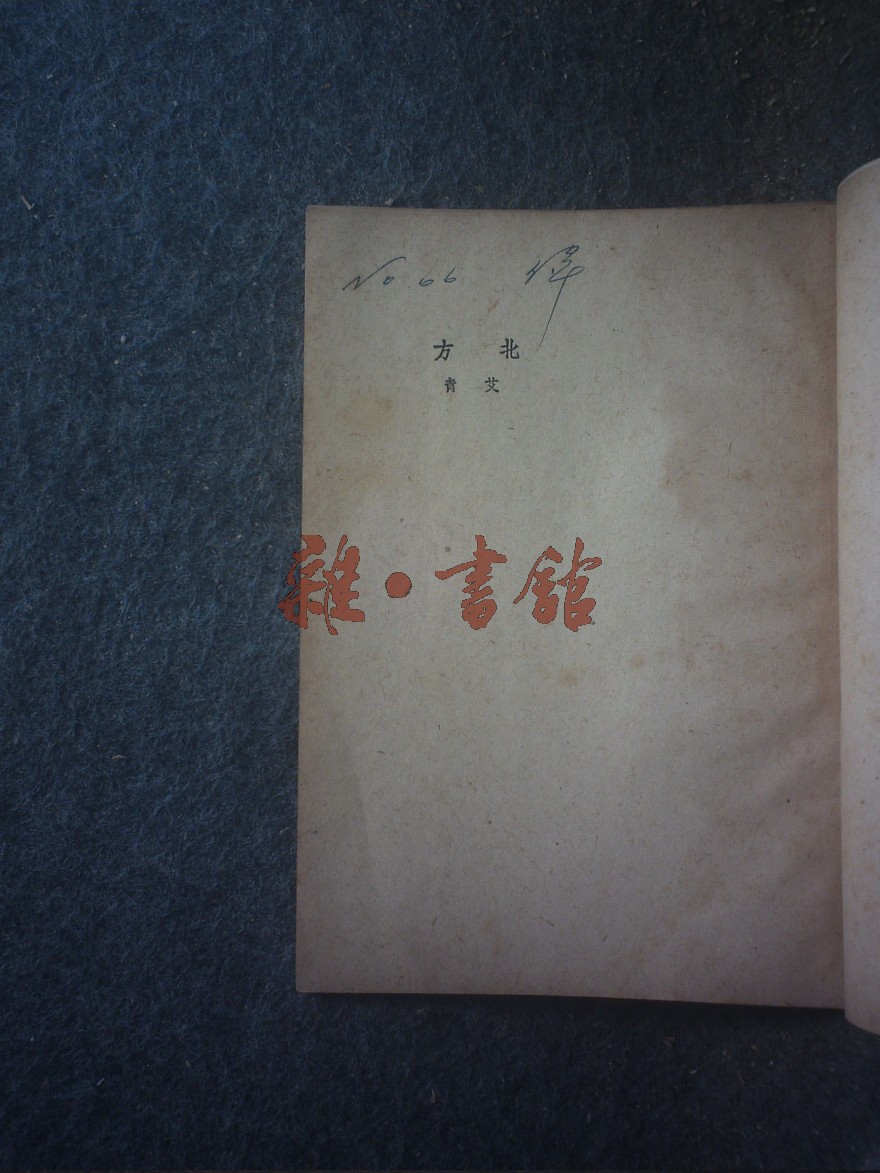 No 66 偉
北方
艾青
雜·書館